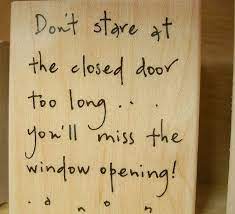 Don't stare at
the closed door
too long. . .
you'll miss the
window opening!